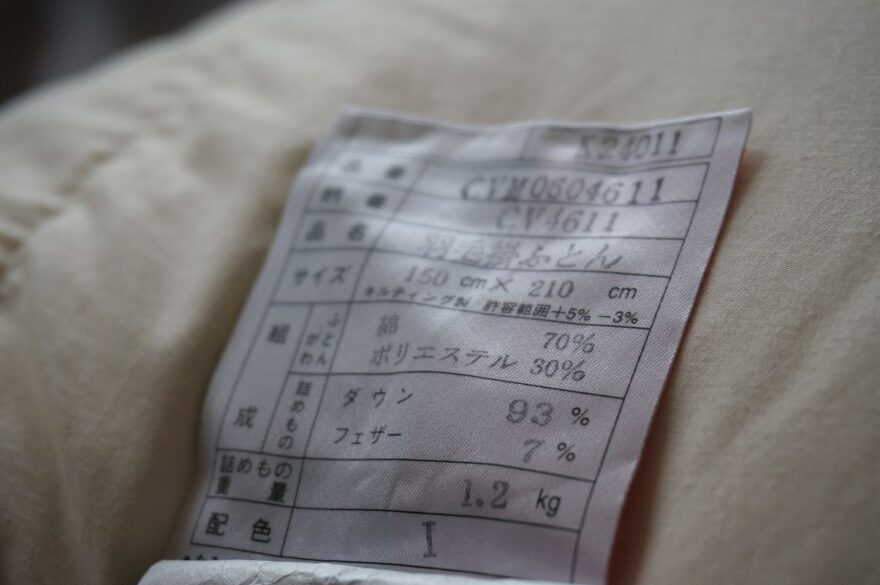 S24011
品番 CVM0604611
柄番 CV4611
品名 羽毛掛ふとん
サイズ 150 cm × 210 cm
キルティング製 許容範囲+5% -3%
組成 ふとんがわ 綿 70%
ポリエステル 30%
詰めもの ダウン 93 %
フェザー 7 %
詰めもの重量 1.2 kg
配色 I